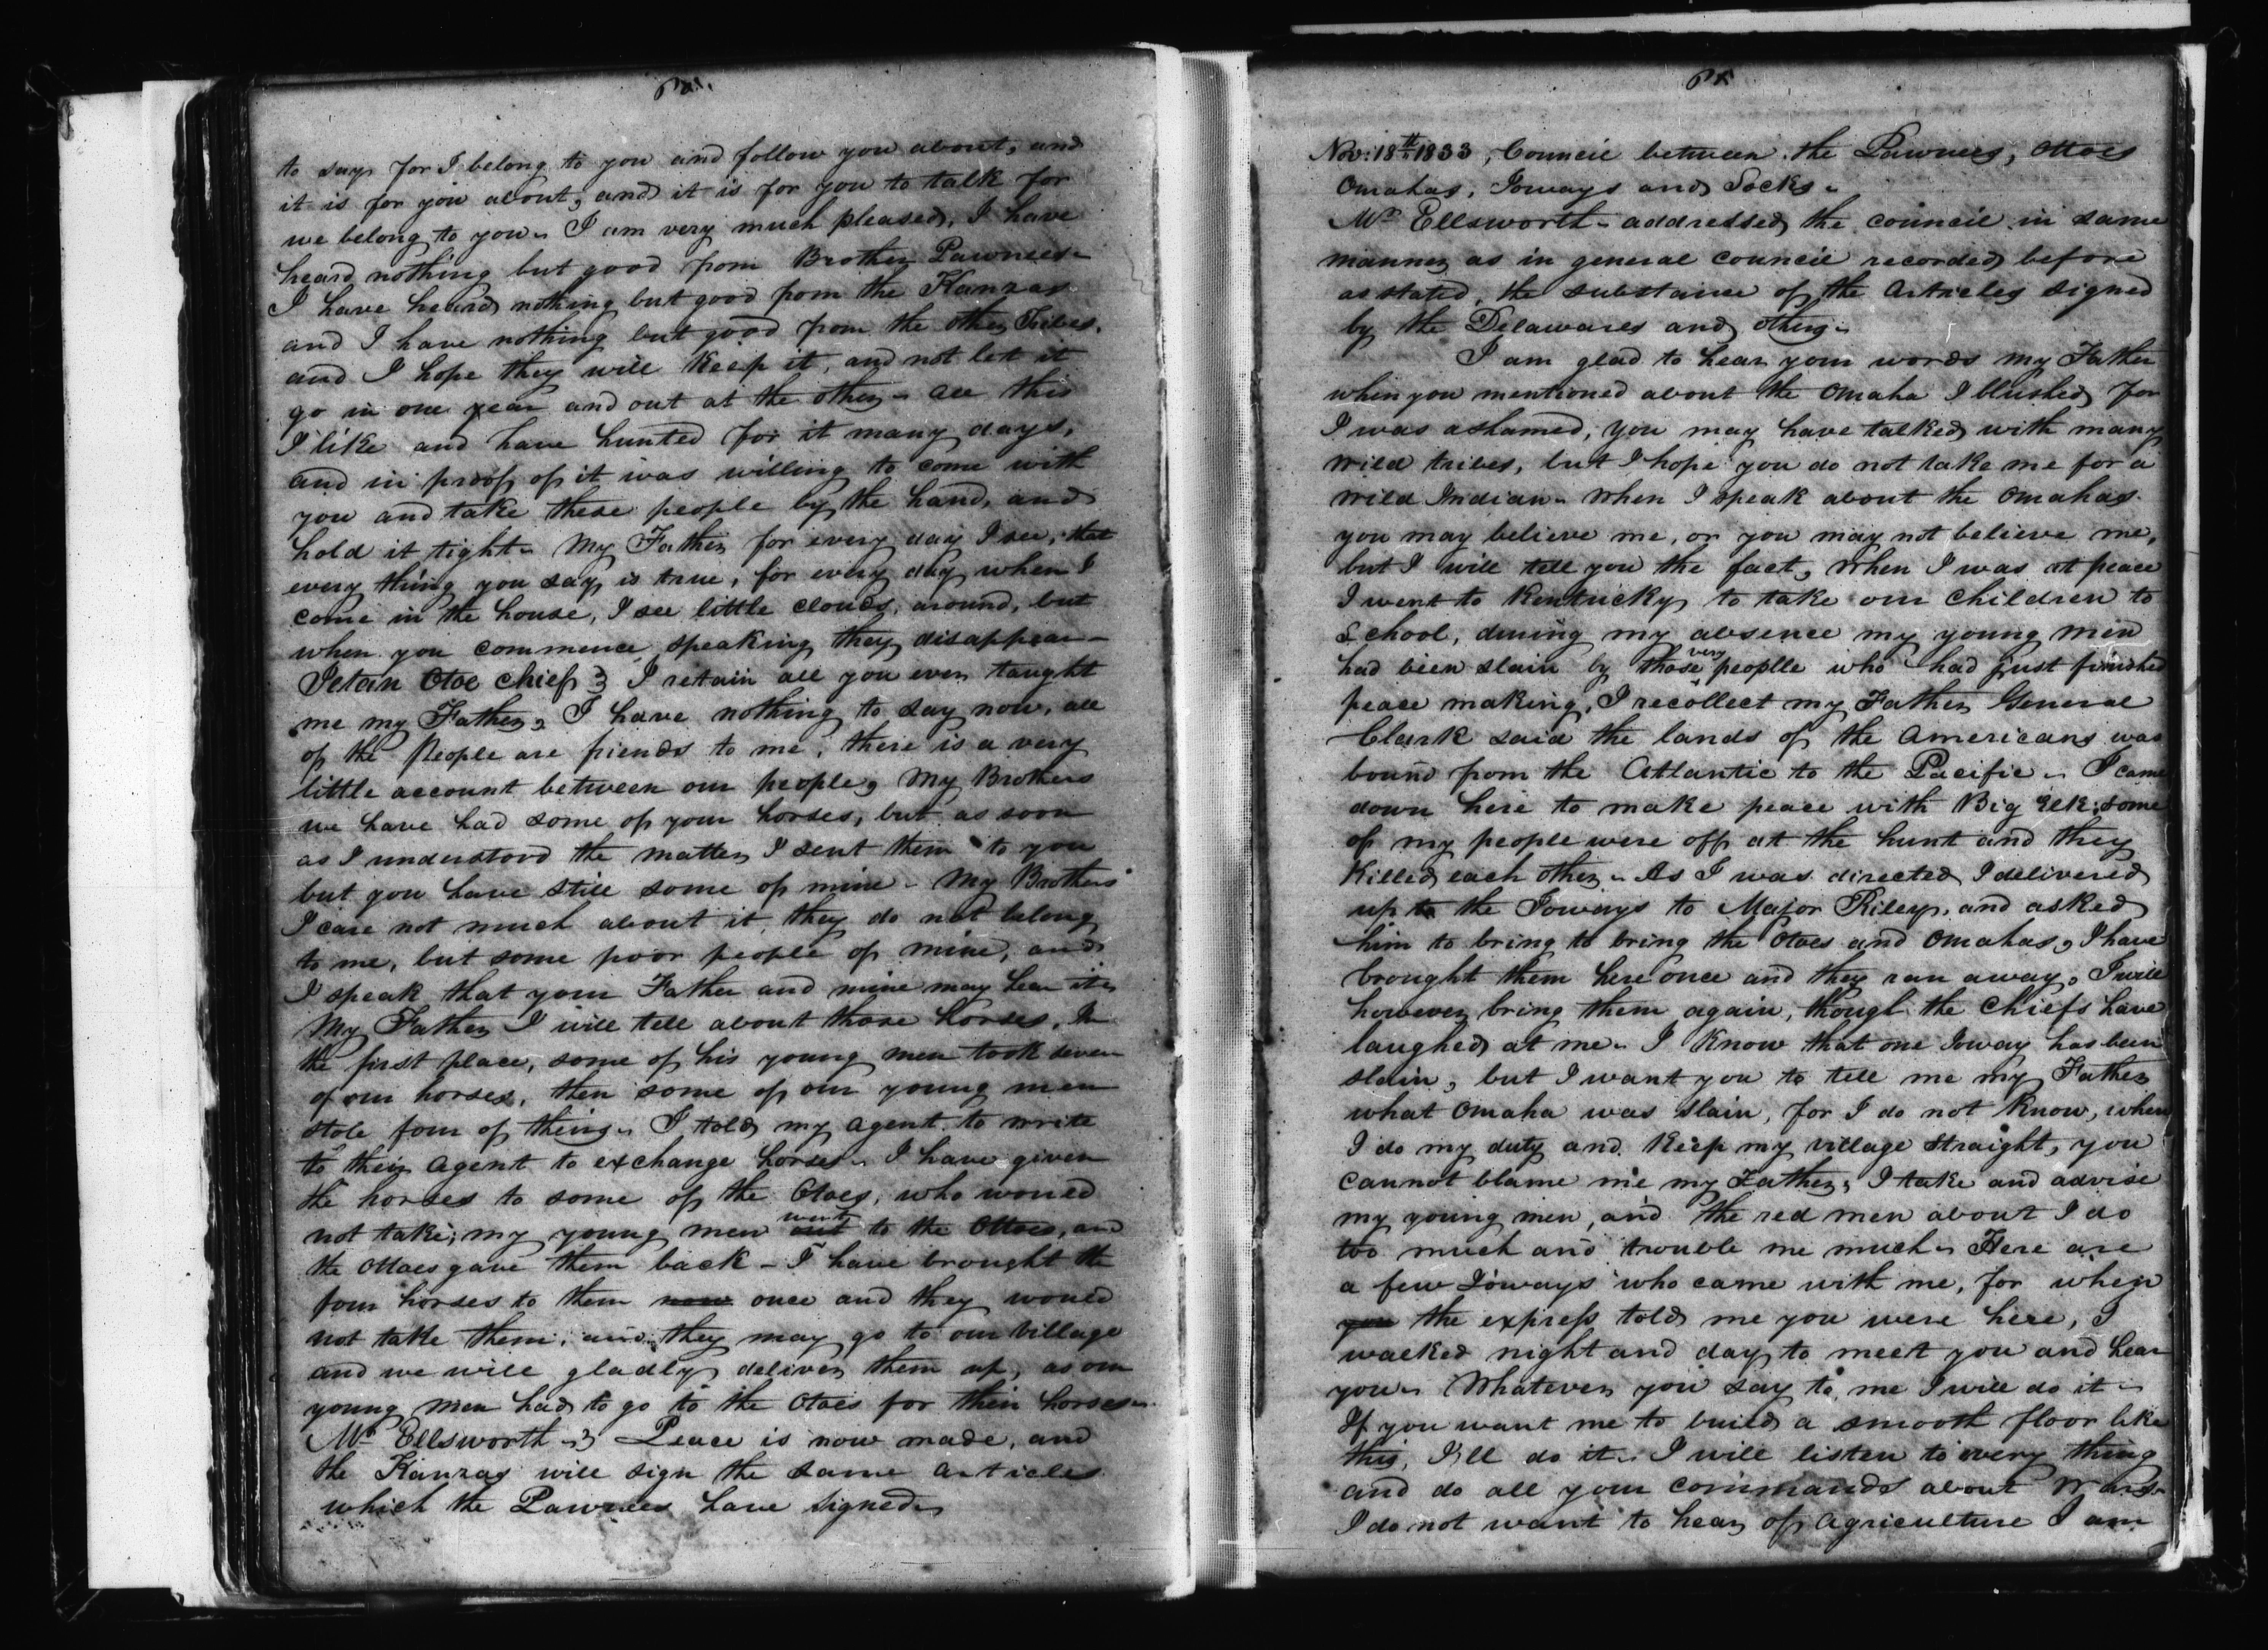 to say for I belong to you and follow you about, and
it is for you about, and it is for you to talk for
we belong to you. I am very much pleased, I have
heard nothing but good from Brother Pawnees.
I have heard nothing but good from the Kanzas
and I have nothing but good from the other Tribes,
and I hope they will keep it, and not let it
go in one year and out at the other. all this
I like and have hunted for it many days,
and in proof of it was willing to come with
you and take these people by the hand, and
hold it tight. My Father for every day I see, that
every thing you say is true, for every day when I
come in the house, I see little clouds, around, but
when you commence speaking they disappear.
Ietan Otoe Chief } I retain all you ever taught
me my Father, I have nothing to say now, all
of the People are friends to me, there is a very
little account between our people, My Brothers
we have had some of your horses, but as soon
as I understood the matter I sent them to you
but you have still some of mine. My Brothers
I care not much about it, they do not belong
to me, but some poor people of mine, and
I speak that your Father and mine may hear it.
My Father I will tell about those horses. In
the first place, some of his young men took seven
of our horses, then some of our young men
stole four of theirs. I told my agent to write
to their agent to exchange horses. I have given
the horses to some of the Otoes, who would
not take; my young men went to the Ottoes, and
the Ottoes gave them back. I have brought the
four horses to them now once and they would
not take them, and they may go to our Village
and we will gladly deliver them up, as our
young men had to go to the Otoes for their horses.
Mr Ellsworth } Peace is now made, and
the Kanzas will sign the same articles
which the Pawnees have signed.
Nov: 18th 1833, Council between the Pawnees, Ottoes
Omahas, Ioways and Socks.
Mr Ellsworth addressed the council in same
manner as in general council recorded before
as stated, the substance of the articles signed
by the Delawares and others.
I am glad to hear your words my Father
when you mentioned about the Omaha I blushed, for
I was ashamed, you may have talked with many
wild tribes, but I hope you do not take me for a
wild Indian. When I speak about the Omahas
you may believe me, or you may not believe me,
but I will tell you the fact, When I was at peace
I went to Kentucky to take our children to
School, during my absence my young men
had been slain by those very peoplle who had just finished
peace making, I recollect my Father General
Clark said the lands of the Americans was
bound from the Atlantic to the Pacific. I came
down here to make peace with Big Elk; some
of my people were off at the hunt and they
Killed each other. As I was directed I delivered
up to the Ioways to Major Riley, and asked
him to bring to bring the Otoes and Omahas, I have
brought them here once and they ran away, I will
however bring them again, though the Chiefs have
laughed at me. I know that one Ioway has been
slain, but I want you to tell me my Father
what Omaha was slain, for I do not know, when
I do my duty and Keep my village straight, you
cannot blame me my Father, I take and advise
my young men, and the red men about I do
too much and trouble me much. Here are
a few Ioways who came with me, for when
you the express told me you were here, I
walked night and day to meet you and hear
you. Whatever you say to me I will do it.
If you want me to build a smooth floor like
this, I'll do it. I will listen to every thing
and do all your commands about Wars.
I do not want to hear of agriculture I am